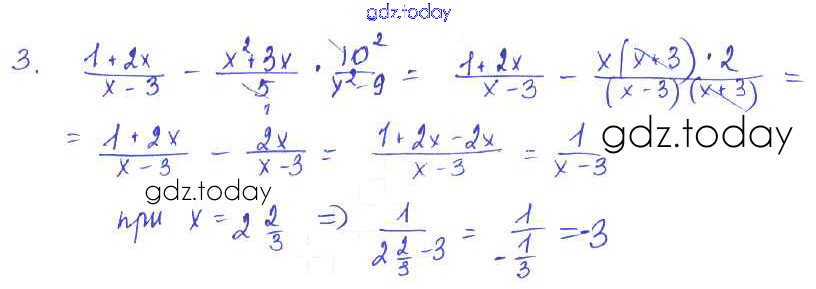 gdz.today
3. (1+2x)/(x-3) - (x²+3x)/5 · 10²/(x²-9) = (1+2x)/(x-3) - (x(x+3)·2)/((x-3)(x+3)) =
= (1+2x)/(x-3) - 2x/(x-3) = (1+2x-2x)/(x-3) = 1/(x-3) gdz.today
gdz.today
при x = 2 2/3 => 1/(2 2/3 - 3) = 1/(-1/3) = -3